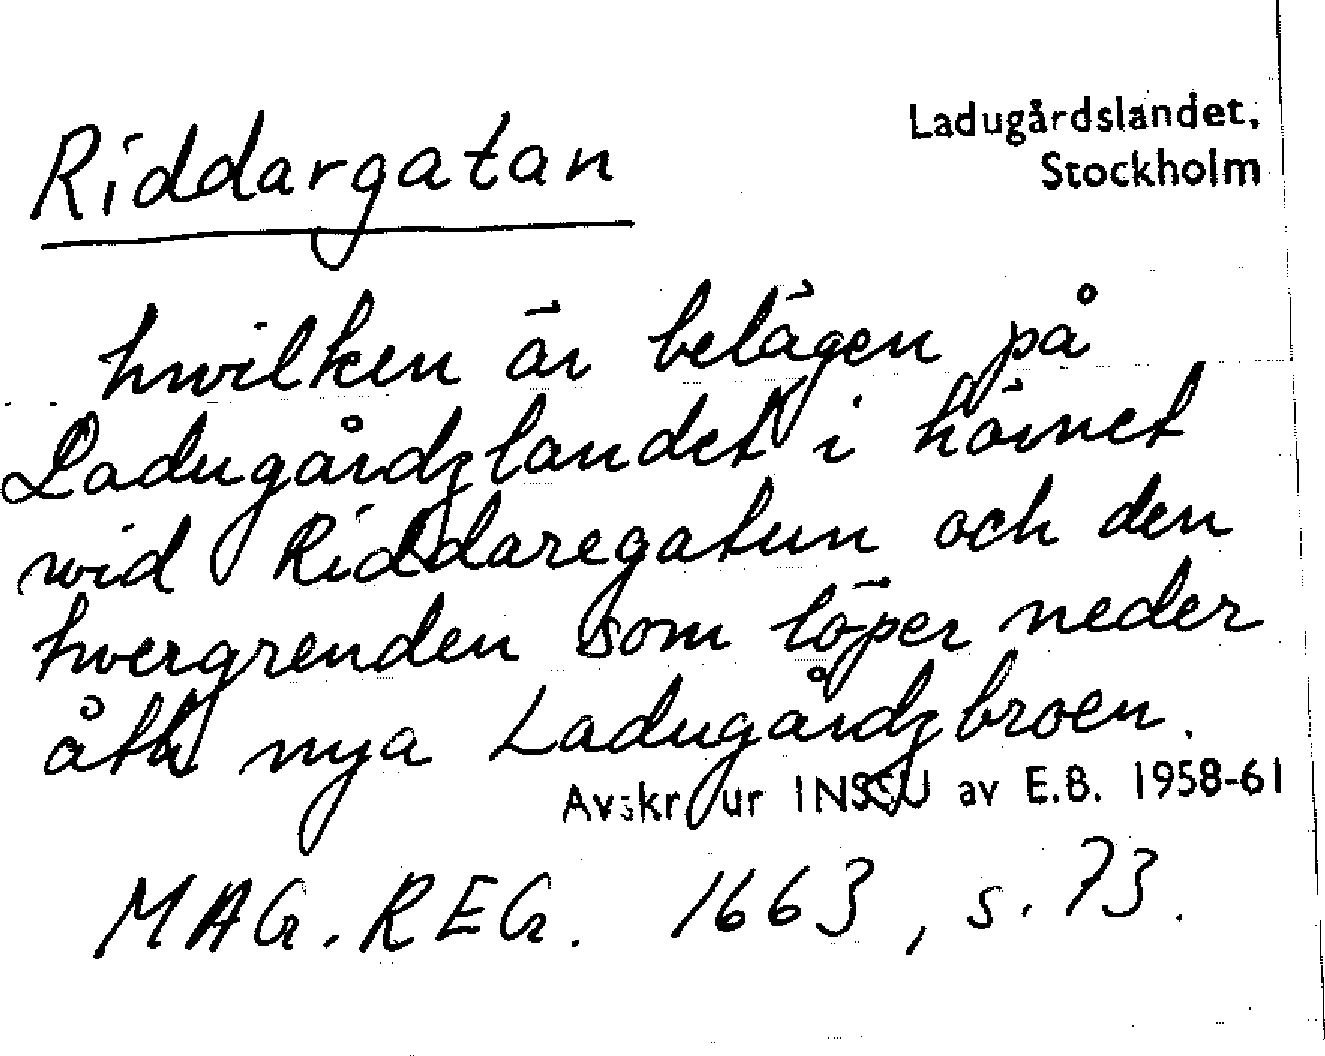 Riddargatan
Ladugårdslandet,
Stockholm
hwilken är belägen på
Ladugårdzlandet i hörnet
wid Riddaregatun och den
twergrenden som löper neder
åth nya Ladugårdzbroen.
Avskr ur INSSU av E.B. 1958-61
MAG. REG. 1663, s. 73.